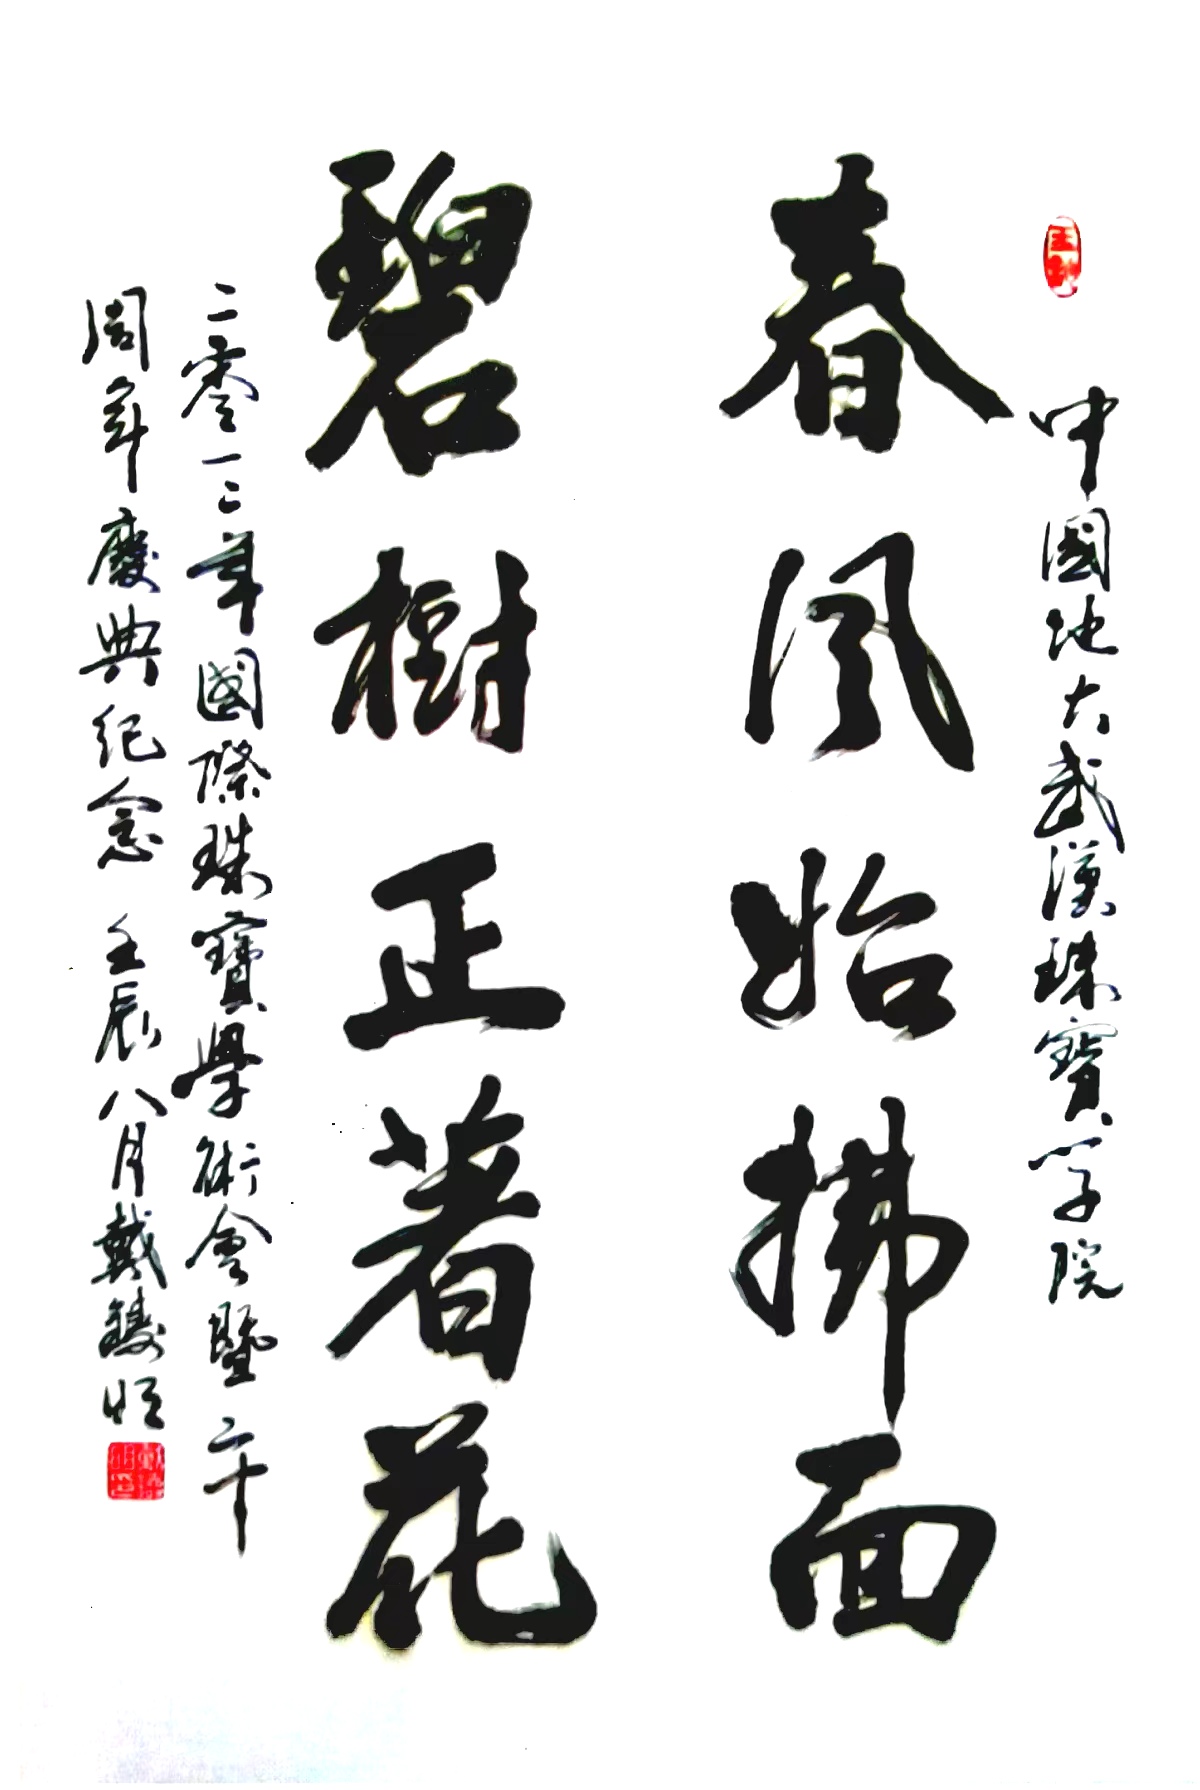 中國地大武漢珠寶学院
春風始拂面
碧樹正著花
二零一二年國際珠寶學術會暨二十
周年慶典紀念 壬辰八月戴鑄明